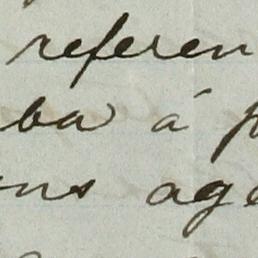 referen
ba á p
ns age